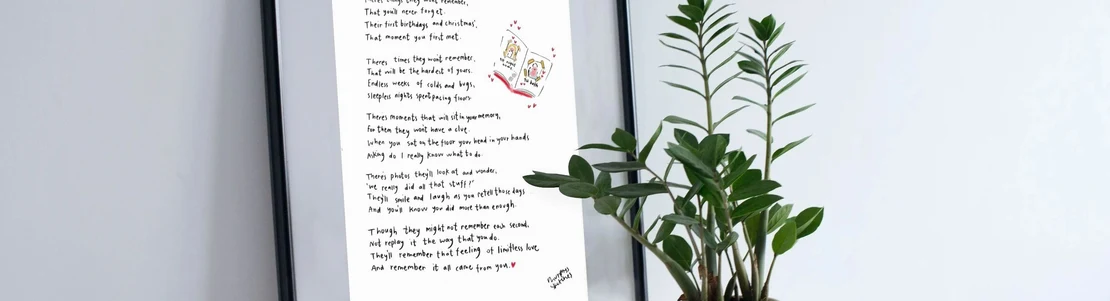 There's things they won't remember,
That you'll never forget.
Their first birthdays and christmas',
That moment you first met.
Theres times they won't remember,
That will be the hardest of yours.
Endless weeks of colds and bugs,
Sleepless nights spent pacing floors.
Theres moments that will sit in your memory,
For them they won't have a clue.
When you sat on the floor your head in your hands
Asking do I really know what to do.
There's photos they'll look at and wonder,
'We really did all that stuff?'
They'll smile and laugh as you retell those days
And you'll know you did more than enough.
Though they might not remember each second,
Not replay it the way that you do.
They'll remember that feeling of limitless love,
And remember it all came from you.